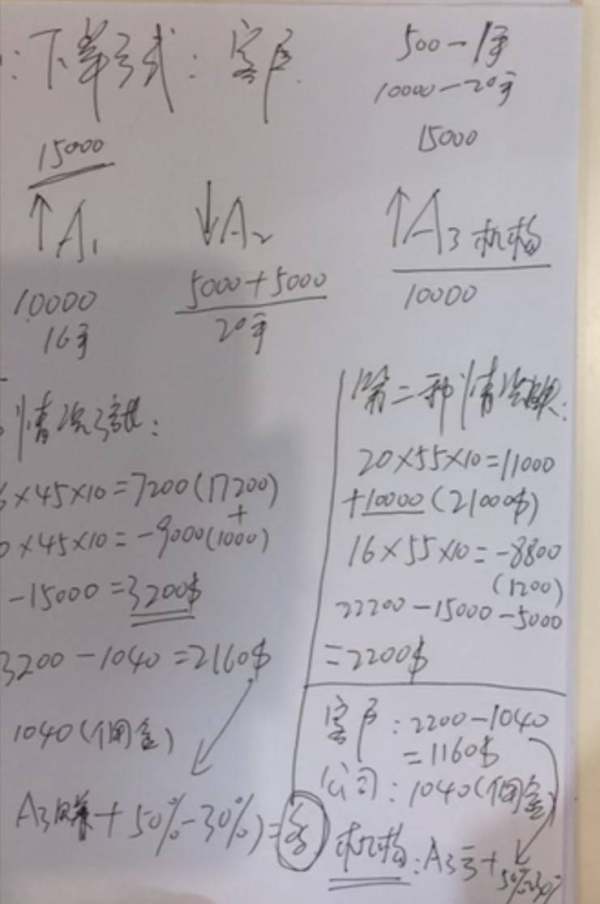 : 下单方式: 客户
500-1手
10000-20手
15000
15000
↑A1
↓A2
↑A3 机构
10000
16手
5000+5000
20手
10000
情况
6×45×10=7200(17200)
+
0×45×10=-9000(1000)
-15000=3200$
3200-1040=2160$
1040(佣金)
A3赚+50%-30%)=客
第二种情况
20×55×10=11000
+10000(21000$)
16×55×10=-8800
(1200)
22200-15000-5000
=2200$
客户:2200-1040
=1160$
公司:1040(佣金)
机构:A3亏+50%-30%